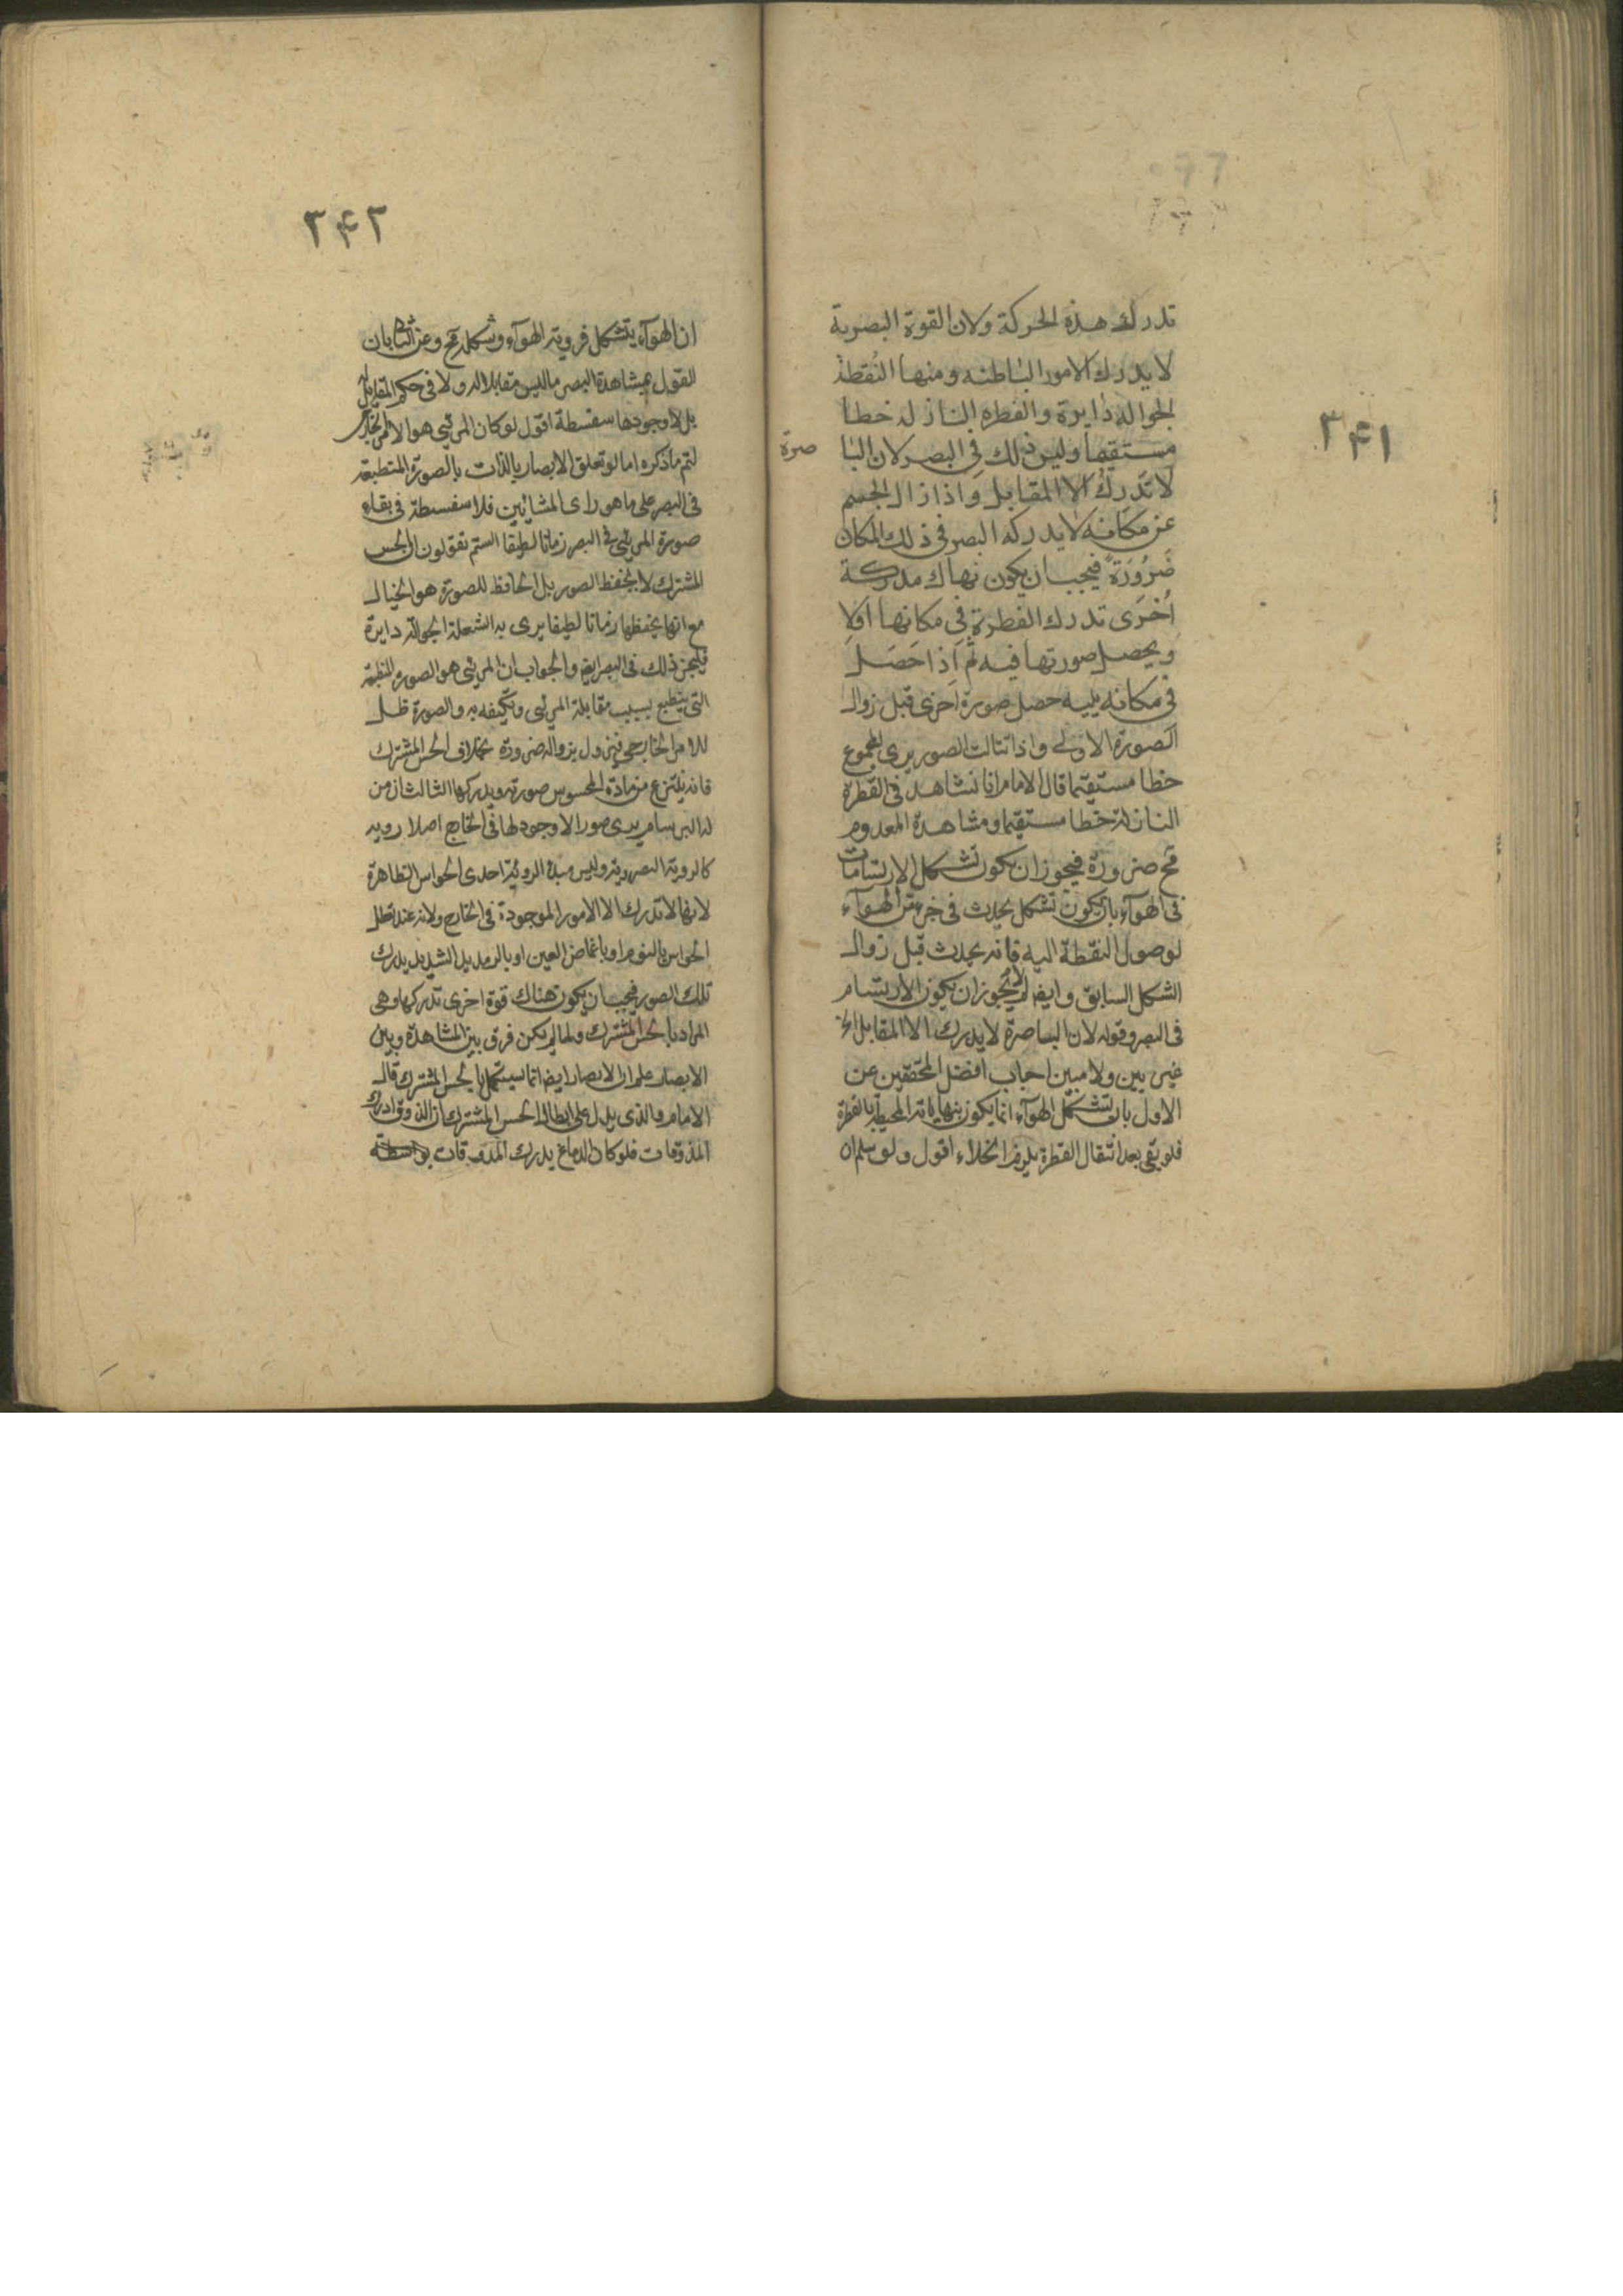 ۳۴۱
تدرك هذه الحركة ولان القوة البصرية
لا يدرك الامور الباطنه ومنها النقطة
الجواله دايرة والقطره النازله خطا
مستقيما وليس ذلك في البصر لان البا
صرة
لا تدرك الا المقابل واذا زال الجسم
عن مكانه لا يدركه البصر في ذلك المكان
ضرورة فيجب ان يكون نهاك مدركة
اخرى تدرك القطرة في مكانها اولا
ويحصل صورتها فيه ثم اذا حصل
في مكانه يليه حصل صورة اخرى قبل زوال
الصورة الاولى واذا تتالت الصور يرى المجموع
خطا مستقيما قال الامام انا نشاهد في القطرة
النازلة خطا مستقيما ومشاهدة المعدوم
مح ضرورة فيجوز ان يكون تشكل الارتسامات
في الهوآء بان يكون تشكل يحدث في جزء من الهوآء
لوصول النقطة اليه فانه يحدث قبل زوال
الشكل السابق وايضا لم لا يجوز ان يكون الارتسام
في البصر وقوله لان الباصرة لا يدرك الا المقابل الخ
غير بين ولا مبين اجاب افضل المحققين عن
الاول بان تشكل الهوآء انما يكون بنهاياته المحيطة بالقطرة
فلو بقى بعد انتقال القطرة يلزم الخلاء اقول ولو سلم ان
۳۴۲
ان الهوآء يتشكل فروية الهوآء وشكله مح وعن الثا بان
القول بمشاهدة البصر ما ليس مقابلا له ولا في حكم المقابل له
بل لا وجود لها سفسطة اقول لو كان المرئي هو الامر الخارجي
لتم ما ذكره اما لو تعلق الابصار بالذات بالصورة المنطبعة
في البصر على ما هو راى المشائين فلا سفسطة في بقاء
صورة المرئي في البصر زمانا لطيفا الستم تقولون ان الحس
المشترك لا يحفظ الصور بل الحافظ للصورة هو الخيال
مع انها يحفظها زمانا لطيفا يرى به الشعلة الجوالة دايرة
فليجز ذلك في البصر ايض والجواب ان المرئي هو الصورة المنطبعة
التى ينطبع بسبب مقابلة المرئي وتكيفه به والصورة ظل
للامر الخارجي فيزول بزواله ضرورة بخلاف الحس المشترك
فانه ينتزع من مادة المحسوس صورته ويدركها الثالث ان من
له البرسام يرى صورا لا وجود لها في الخارج اصلا روية
كالروية البصرية وليس مبدأ الروئية احدى الحواس الظاهرة
لانها لا تدرك الا الامور الموجودة في الخارج ولانه عند تعطل
الحواس بالنوم او باغماض العين او بالرمد الشديد يدرك
تلك الصور فيجب ان يكون هناك قوة اخرى تدركها وهى
المراد بالحس المشترك ولما لم يكن فرق بين المشاهدة وبين
الابصار علم ان الابصار ايضا انما يستكمل بالحس المشترك قال
الامام والذى يدل على ابطال الحس المشترك ان الذوق ادراك
المذوقات فلو كان الدماغ يدرك المذوقات بواسطة